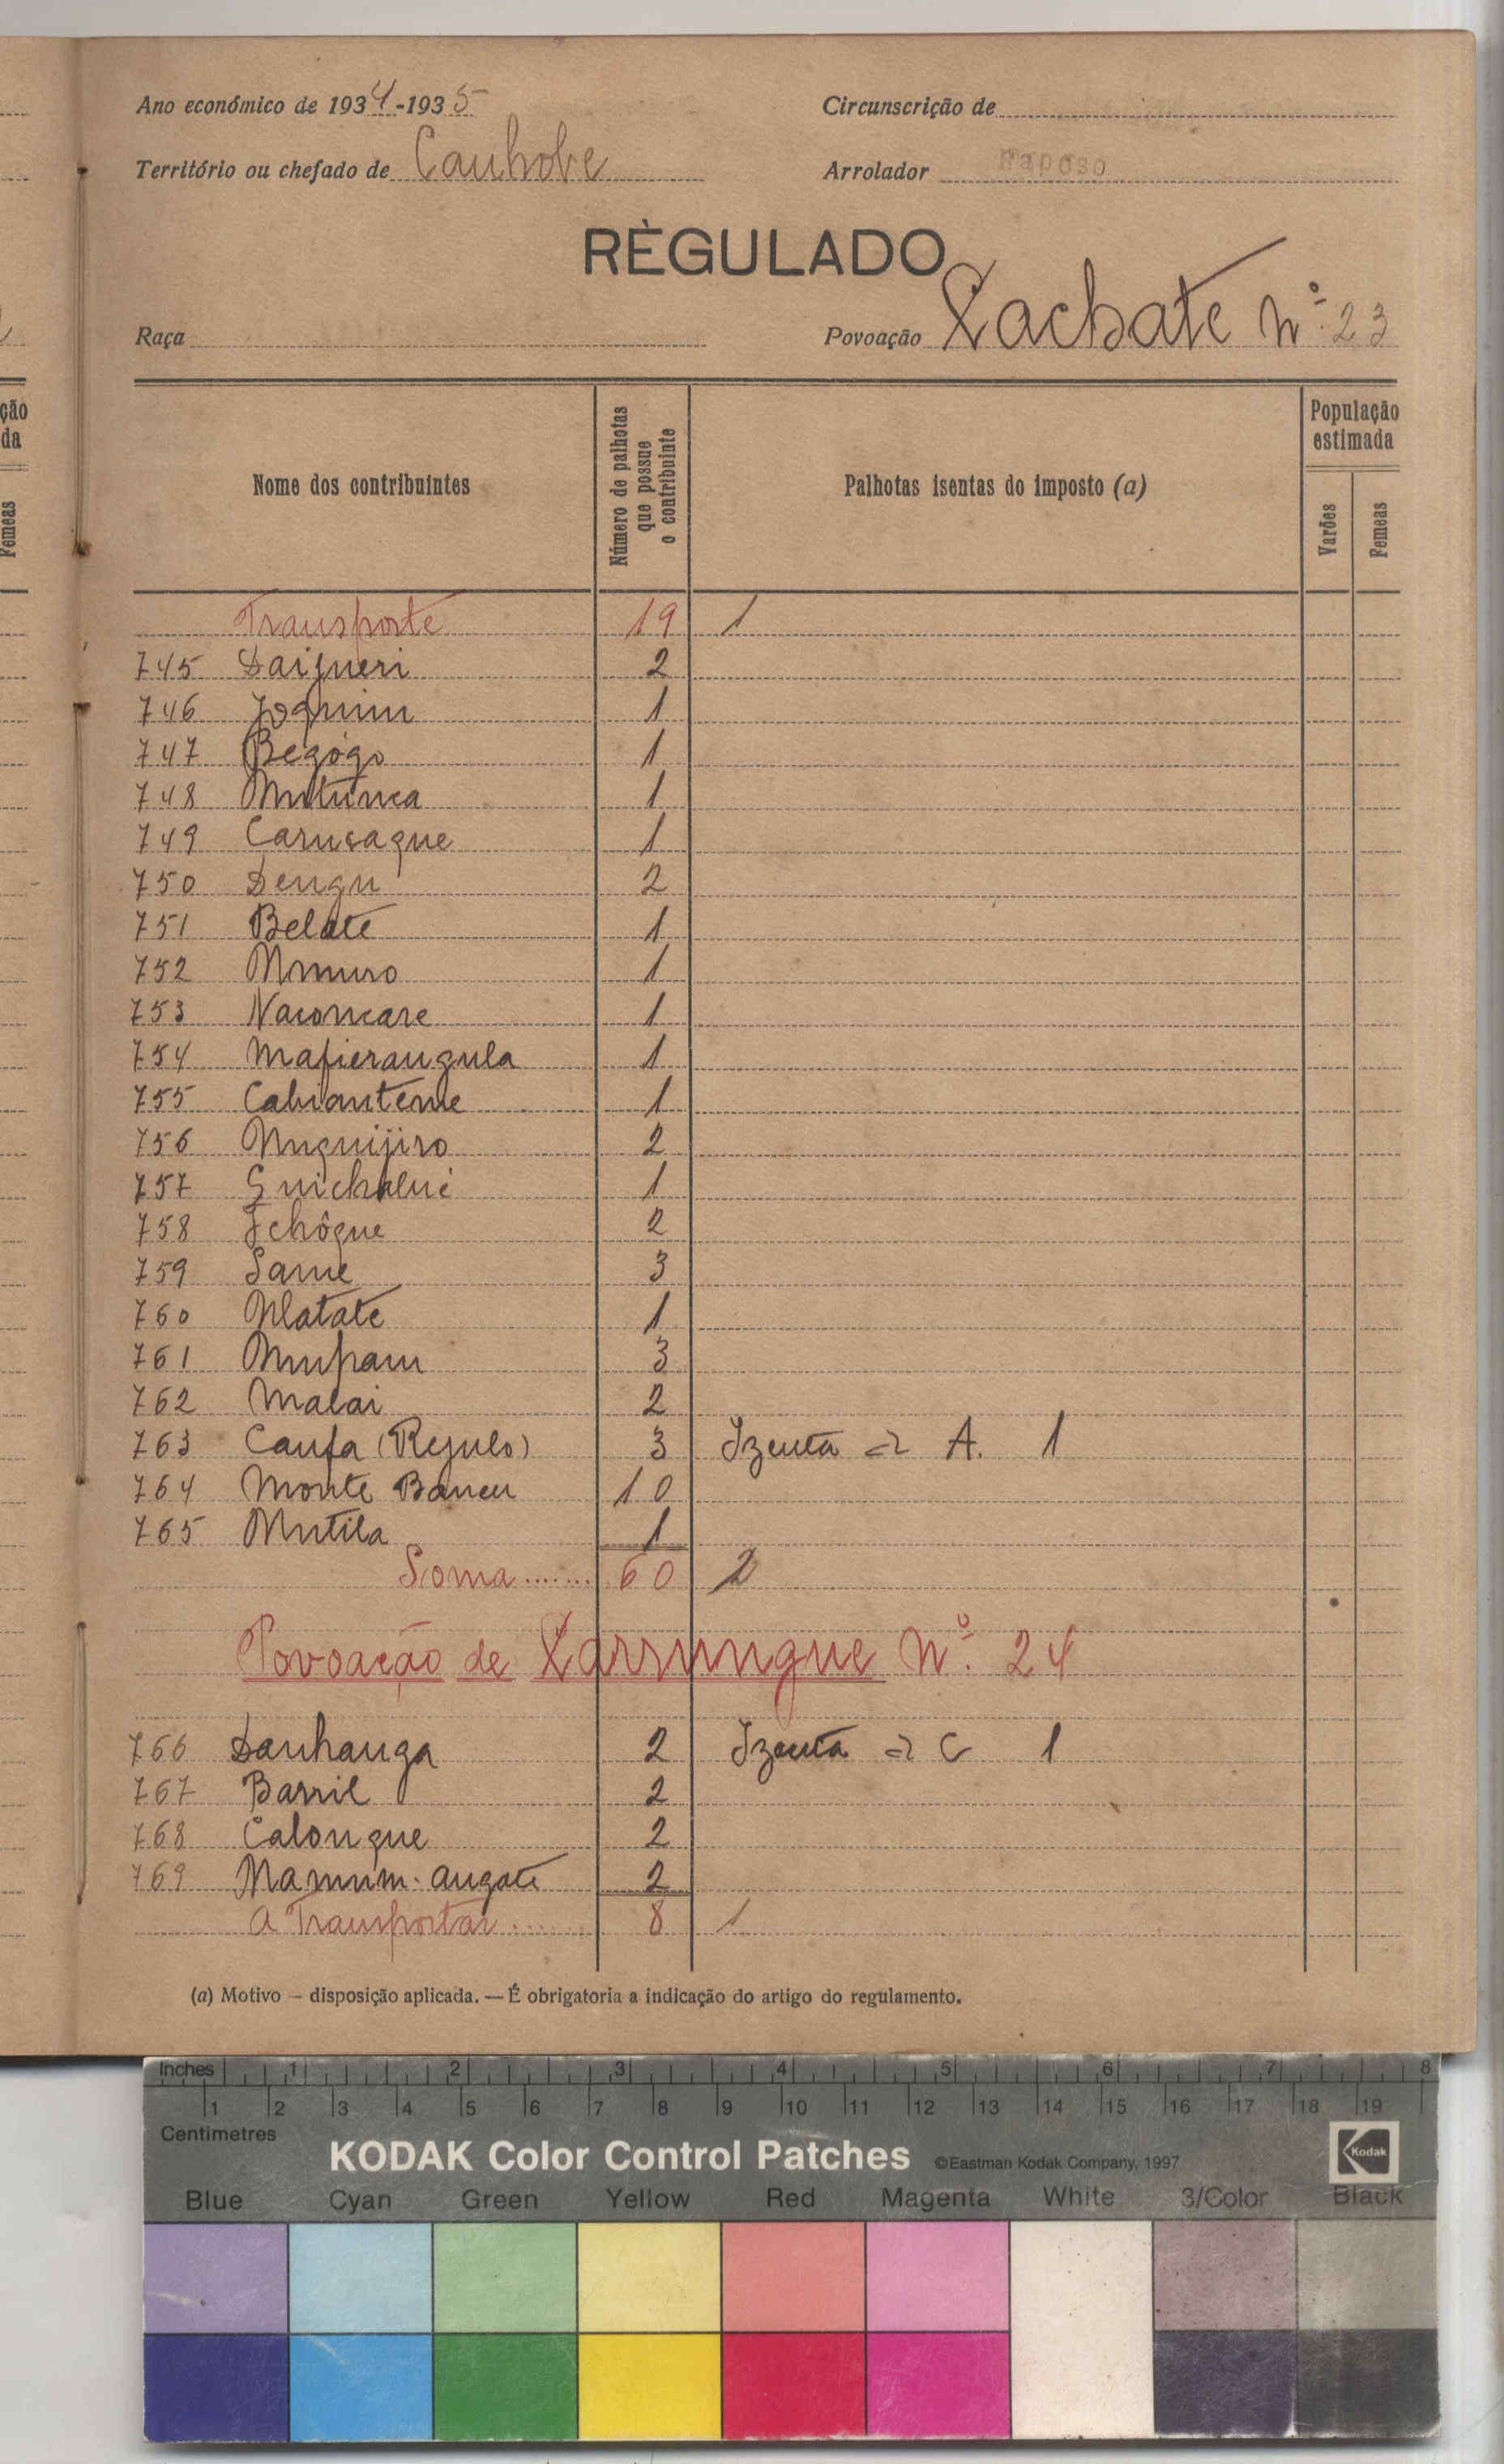 Ano económico de 1934-1935
Circunscrição de
Território ou chefado de Canhobe
Arrolador Raposo
RÈGULADO
Raça
Povoação Zachate Nº 23
Nome dos contribuintes
Número de palhotas que possue o contribuinte
Palhotas isentas do imposto (a)
População estimada
Varões
Femeas
Transporte 19 1
745 2
746 Joquim 1
747 Begógo 1
748 1
749 Carusaque 1
750 Dengu 2
751 Belate 1
752 1
753 1
754 Mafierangula 1
755 1
756 2
757 1
758 Ichôque 2
759 Same 3
760 Matate 1
761 3
762 Malai 2
763 Canfa (Regulo) 3 Izenta A. 1
764 Monte 10
765 Mutila 1
Soma....... 60 2
Povoação de Zarrungue Nº. 24
766 Danhanga 2 Izenta C 1
767 Barril 2
768 Calongue 2
769 2
A Transportar...... 8 1
(a) Motivo — disposição aplicada. — É obrigatoria a indicação do artigo do regulamento.
ção
da
Femeas
Inches 1 2 3 4 5 6 7 8
1 2 3 4 5 6 7 8 9 10 11 12 13 14 15 16 17 18 19
Centimetres
KODAK Color Control Patches ©Eastman Kodak Company, 1997 Kodak
Blue Cyan Green Yellow Red Magenta White 3/Color Black